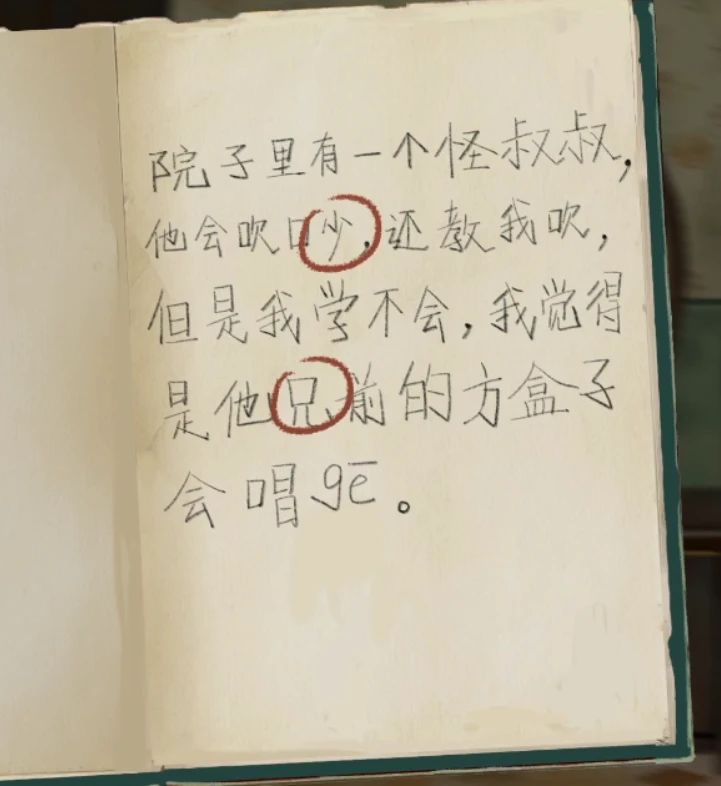 院子里有一个怪叔叔，
他会吹口少，还教我吹，
但是我学不会，我觉得
是他兄前的方盒子
会唱gē。